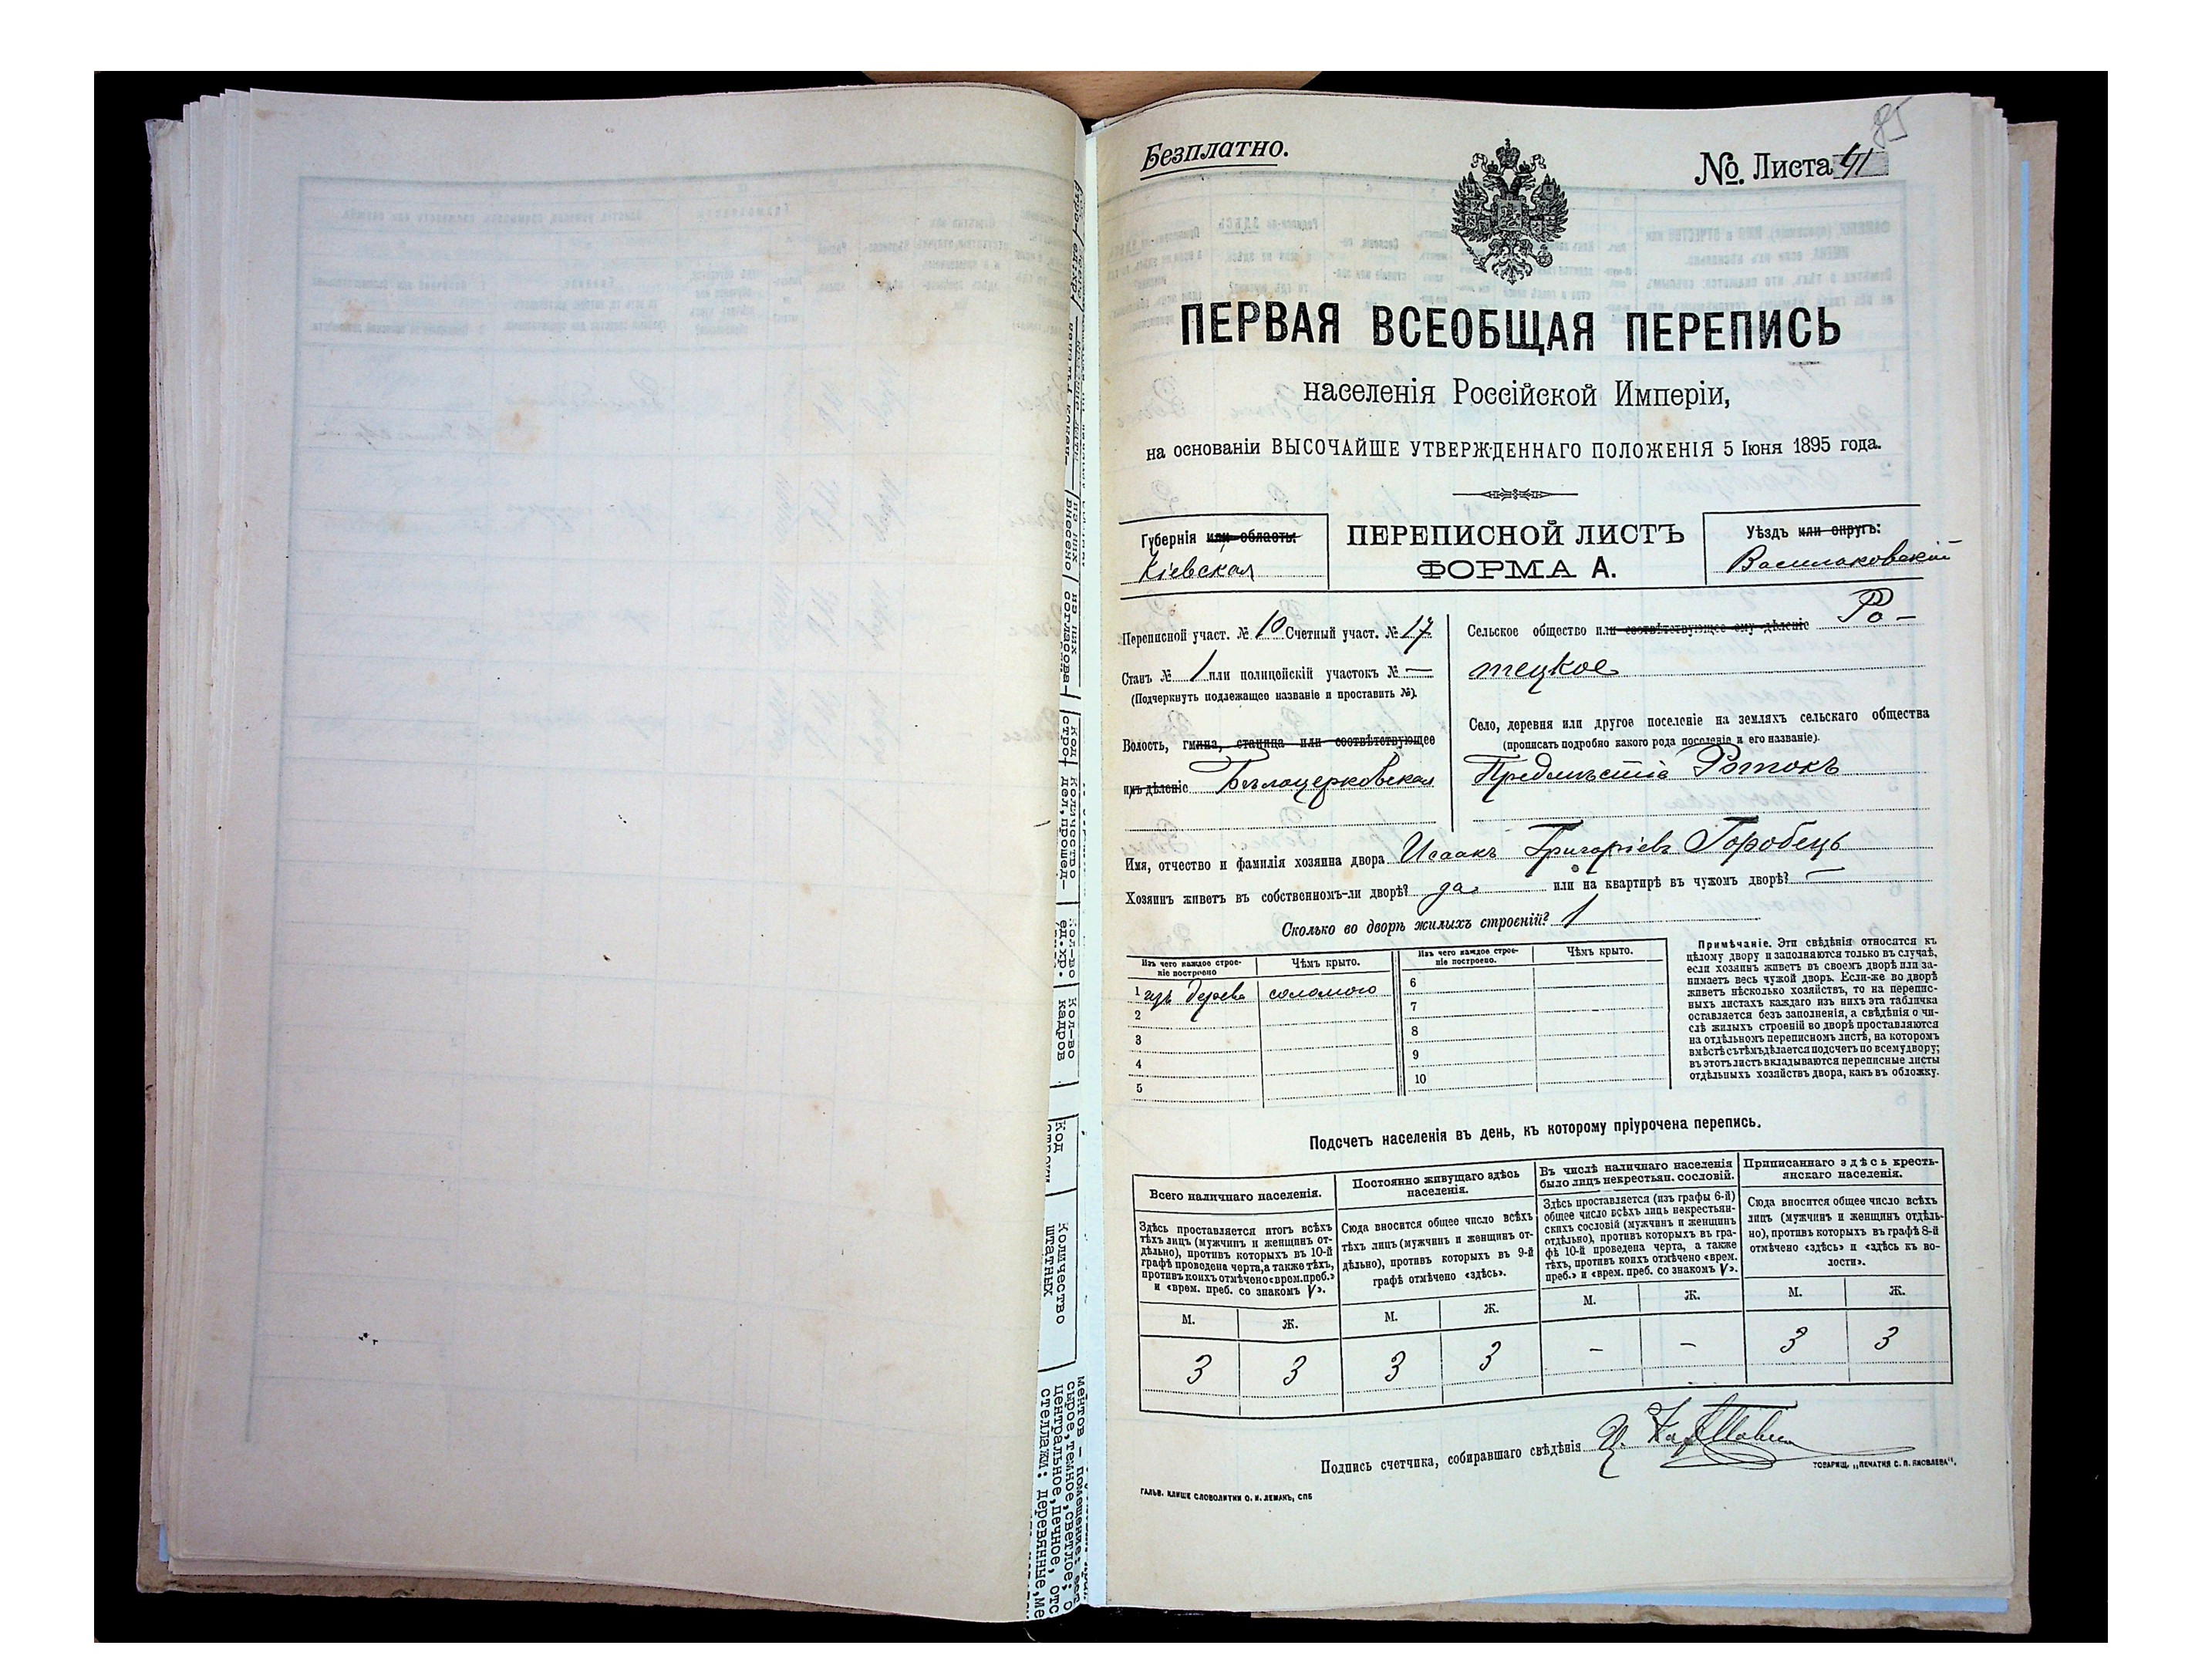 85
Безплатно.
№ Листа 41
ПЕРВАЯ ВСЕОБЩАЯ ПЕРЕПИСЬ
населенія Россійской Имперіи,
на основаніи ВЫСОЧАЙШЕ УТВЕРЖДЕННАГО ПОЛОЖЕНІЯ 5 Іюня 1895 года.
Губернія или область:
Кіевская
ПЕРЕПИСНОЙ ЛИСТЪ
ФОРМА А.
Уѣздъ или округъ:
Васильковскій
Переписной участ. № 10 Счетный участ. № 17
Станъ № 1 или полицейскій участокъ № —
(Подчеркнуть подлежащее названіе и проставить №).
Волость, гмина, станица или соотвѣтствующее
имъ дѣленіе Бѣлоцерковская
Сельское общество или соотвѣтствующее ему дѣленіе Ро-
тецкое
Село, деревня или другое поселеніе на земляхъ сельскаго общества
(прописать подробно какого рода поселеніе и его названіе).
Предмѣстіе Ротокъ
Имя, отчество и фамилія хозяина двора Исаакъ Григоріевъ Горобець
Хозяинъ живетъ въ собственномъ-ли дворѣ? да или на квартирѣ въ чужомъ дворѣ? —
Сколько во дворѣ жилыхъ строеній? 1
Изъ чего каждое строе-
ніе построено
Чѣмъ крыто.
Изъ чего каждое строе-
ніе построено.
Чѣмъ крыто.
1 изъ дерева соломою
2
3
4
5
6
7
8
9
10
Примѣчаніе. Эти свѣдѣнія относятся къ
цѣлому двору и заполняются только въ случаѣ,
если хозяинъ живетъ въ своемъ дворѣ или за-
нимаетъ весь чужой дворъ. Если-же во дворѣ
живетъ нѣсколько хозяйствъ, то на перепис-
ныхъ листахъ каждаго изъ нихъ эта табличка
оставляется безъ заполненія, а свѣдѣнія о чи-
слѣ жилыхъ строеній во дворѣ проставляются
на отдѣльномъ переписномъ листѣ, на которомъ
вмѣстѣ съ тѣмъ дѣлается подсчетъ по всему двору;
въ этотъ листъ вкладываются переписные листы
отдѣльныхъ хозяйствъ двора, какъ въ обложку.
Подсчетъ населенія въ день, къ которому пріурочена перепись.
Всего наличнаго населенія.
Здѣсь проставляется итогъ всѣхъ
тѣхъ лицъ (мужчинъ и женщинъ от-
дѣльно), противъ которыхъ въ 10-й
графѣ проведена черта, а также тѣхъ,
противъ коихъ отмѣчено «врем. преб.»
и «врем. преб. со знакомъ V».
М.
Ж.
3
3
Постоянно живущаго здѣсь
населенія.
Сюда вносится общее число всѣхъ
тѣхъ лицъ (мужчинъ и женщинъ от-
дѣльно), противъ которыхъ въ 9-й
графѣ отмѣчено «здѣсь».
М.
Ж.
3
3
Въ числѣ наличнаго населенія
было лицъ некрестьян. сословій.
Здѣсь проставляется (изъ графы 6-й)
общее число всѣхъ лицъ некрестьян-
скихъ сословій (мужчинъ и женщинъ
отдѣльно), противъ которыхъ въ гра-
фѣ 10-й проведена черта, а также
тѣхъ, противъ коихъ отмѣчено «врем.
преб.» и «врем. преб. со знакомъ V».
М.
Ж.
–
–
Приписаннаго здѣсь кресть-
янскаго населенія.
Сюда вносится общее число всѣхъ
лицъ (мужчинъ и женщинъ отдѣль-
но), противъ которыхъ въ графѣ 8-й
отмѣчено «здѣсь» и «здѣсь къ во-
лости».
М.
Ж.
3
3
Подпись счетчика, собиравшаго свѣдѣнія
ГАЛЬВ. КЛИШЕ СЛОВОЛИТНИ О. И. ЛЕМАНЪ, СПБ
ТОВАРИЩ. „ПЕЧАТНЯ С. П. ЯКОВЛЕВА".